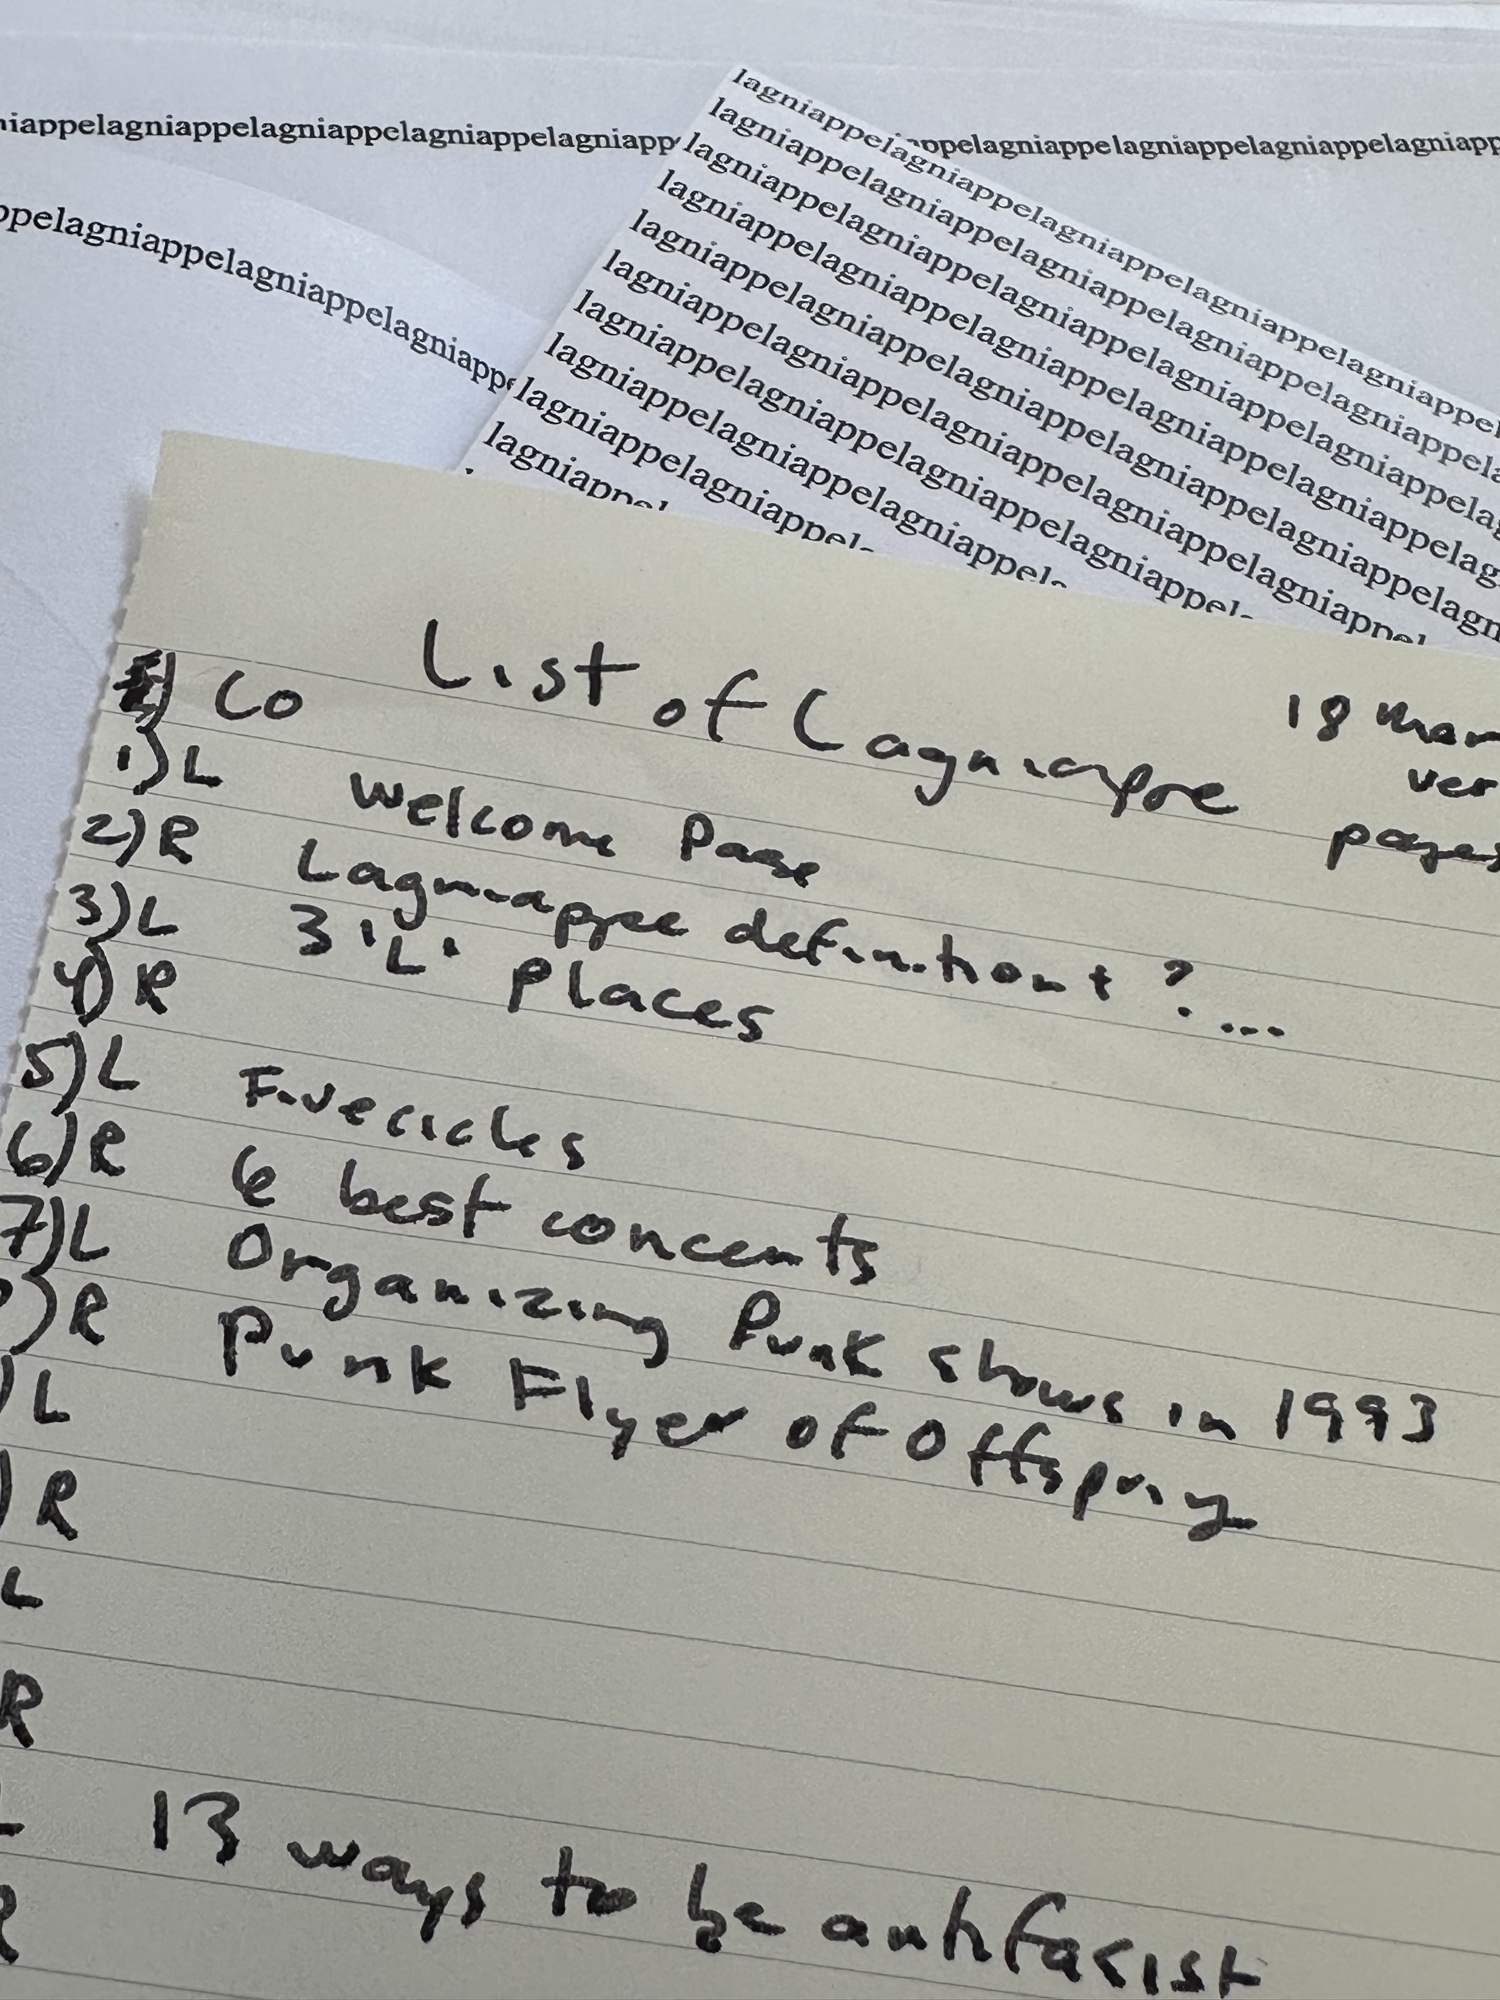 lagniappelagniappelagniappelagniappelagniappelagniappel
niappelagniappelagniappelagniappelagniapp
appelagniappelagniappelagniappelagniapp
lagniappelagniappelagniappelagniappelagniappel
lagniappelagniappelagniappelagniappelagniappela
lagniappelagniappelagniappelagniappelagniappelag
ppelagniappelagniappelagniappe
lagniappelagniappelagniappelagniappelagniappelag
lagniappelagniappelagniappelagniappelagniappelagn
lagniappelagniappelagniappelagniappelagniapp
lagniappelagniappelagniappelagniappel
lagniappelagniappelagniappel
lagniappelagniappel
lagniappel
List of Lagniappe
18
ver
pages
) Co
1) L Welcome Page
2) R Lagniappe definition + ? ...
3) L 3 'L' Places
4) R
5) L Fivecicles
6) R 6 best concerts
7) L Organizing Punk shows in 1993
) R Punk Flyer of Offspring
) L
) R
L
R
L 13 ways to be antifascist
R